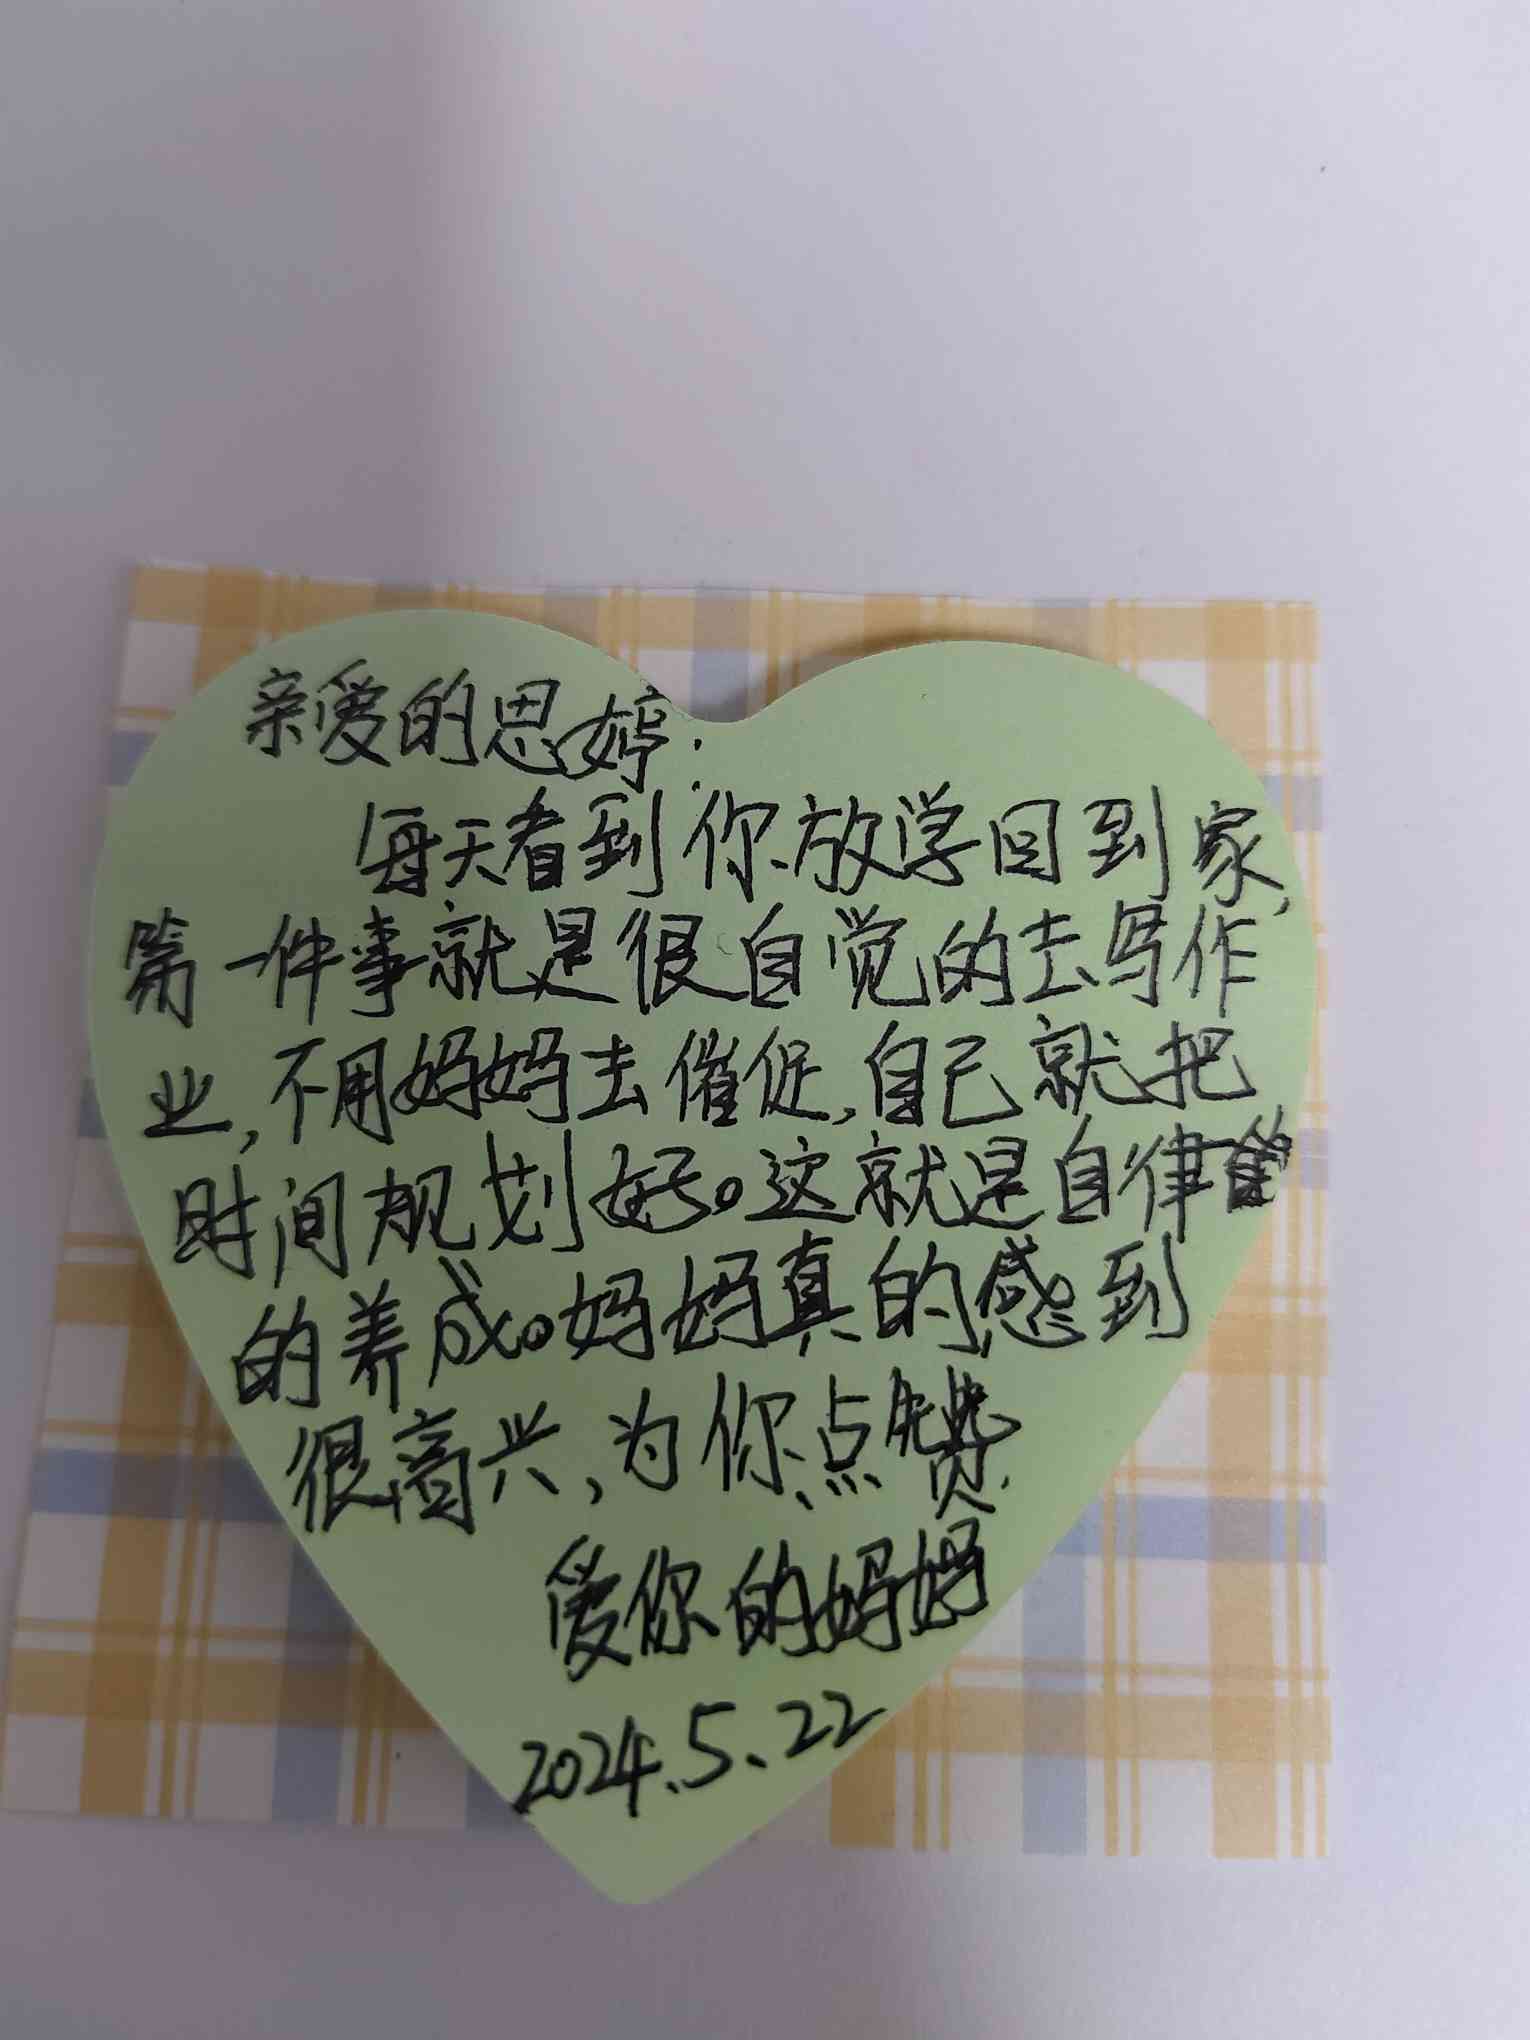 亲爱的思婷:
每天看到你放学回到家,
第一件事就是很自觉的去写作
业,不用妈妈去催促,自己就把
时间规划好。这就是自律
的养成。妈妈真的感到
很高兴,为你点赞.
爱你的妈妈
2024.5.22